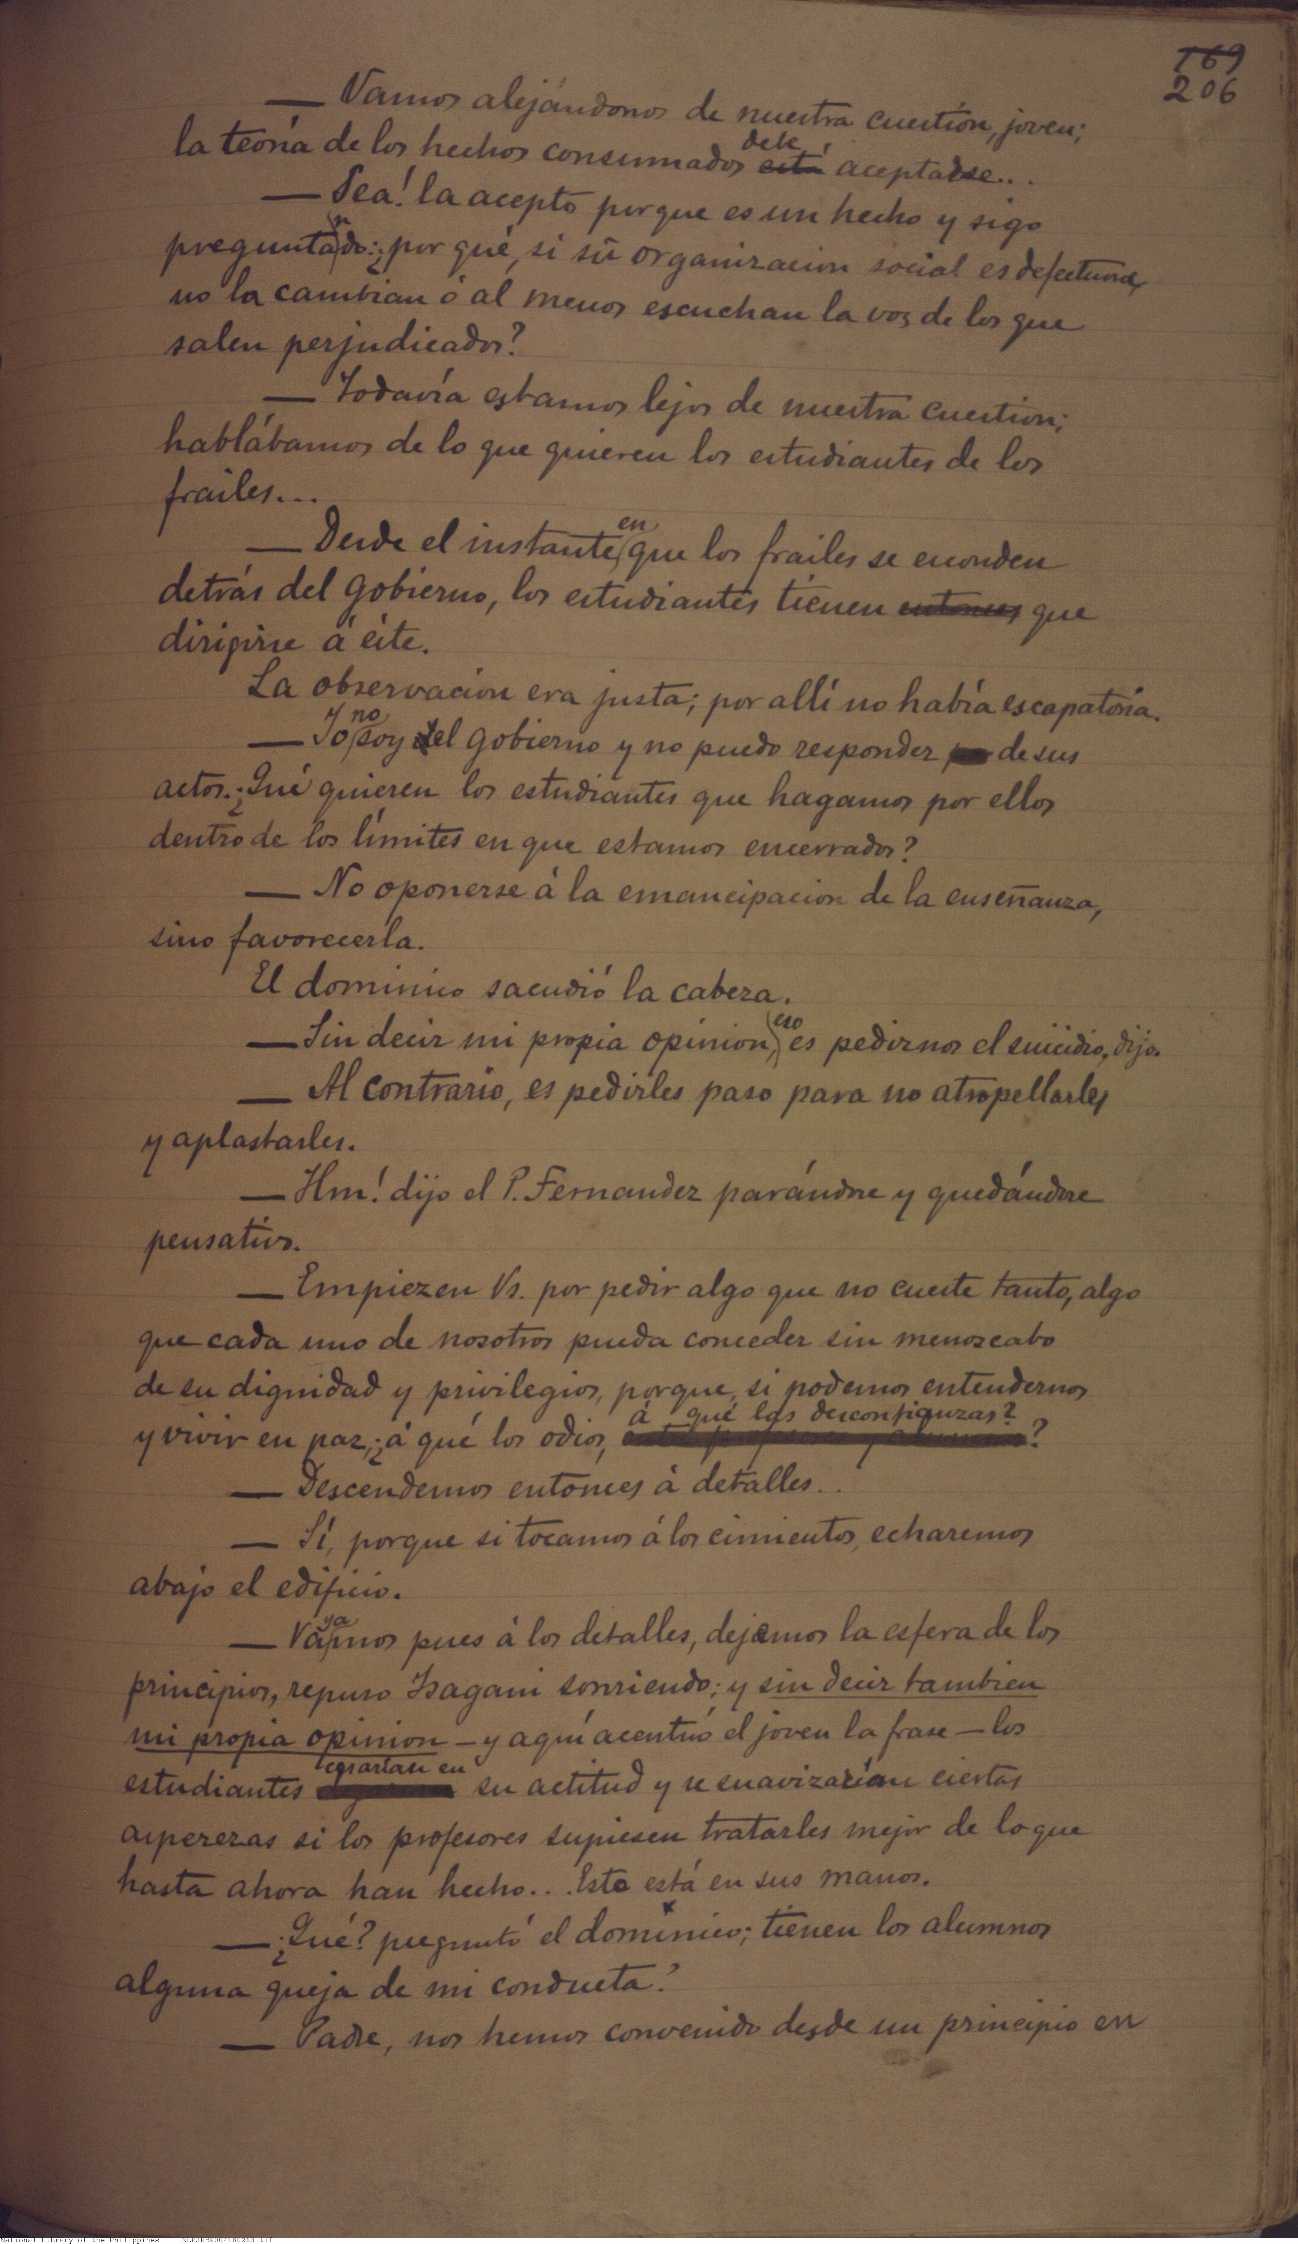 169
206
— Vamos alejándonos de nuestra cuestión, joven;
la teoría de los hechos consumados está debe aceptarse...
— Sea! la acepto porque es un hecho y sigo
preguntando: ¿por qué, si su organizacion social es defectuosa,
no la cambian ó al menos escuchan la voz de los que
salen perjudicados?
— Todavía estamos lejos de nuestra cuestion;
hablábamos de lo que quieren los estudiantes de los
frailes...
— Desde el instante en que los frailes se esconden
detrás del gobierno, los estudiantes tienen entonces que
dirigirse á éste.
La observacion era justa; por allí no había escapatoria.
— Yo no soy el gobierno y no puedo responder de sus
actos. ¿Qué quieren los estudiantes que hagamos por ellos
dentro de los límites en que estamos encerrados?
— No oponerse á la emancipacion de la enseñanza,
sino favorecerla.
El dominico sacudió la cabeza.
— Sin decir mi propia opinion, eso es pedirnos el suicidio, dijo.
— Al contrario, es pedirles paso para no atropellarles
y aplastarles.
— Hm! dijo el P. Fernandez parándose y quedándose
pensativo.
— Empiezen Vs. por pedir algo que no cueste tanto, algo
que cada uno de nosotros pueda conceder sin menoscabo
de su dignidad y privilegios, porque, si podemos entendernos
y vivir en paz, ¿á qué los odios, á qué las desconfianzas?
— Descendemos entonces á detalles..
— Sí, porque si tocamos á los cimientos, echaremos
abajo el edificio.
— Vayamos pues á los detalles, dejemos la esfera de los
principios, repuso Isagani sonriendo; y sin decir tambien
mi propia opinion — y aquí acentuó el joven la frase — los
estudiantes cesarían en su actitud y se suavizarían ciertas
asperezas si los profesores supiesen tratarles mejor de lo que
hasta ahora han hecho... Esto está en sus manos.
— ¿Qué? preguntó el dominico; tienen los alumnos
alguna queja de mi conducta?
— Padre, nos hemos convenido desde un principio en
National Library of the Philippines